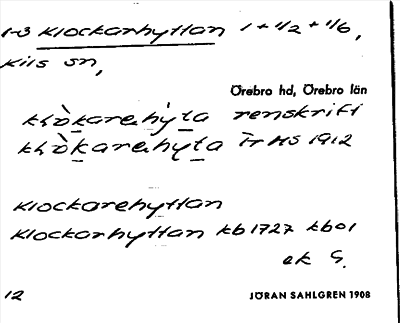 1-3 Klockarhyttan 1 + 1/2 + 1/6,
Kils sn,
Örebro hd, Örebro län
renskrift
Fr HS 1912
Klockarehyttan
Klockarhyttan kb 1727 kbol
ek G.
12
JÖRAN SAHLGREN 1908